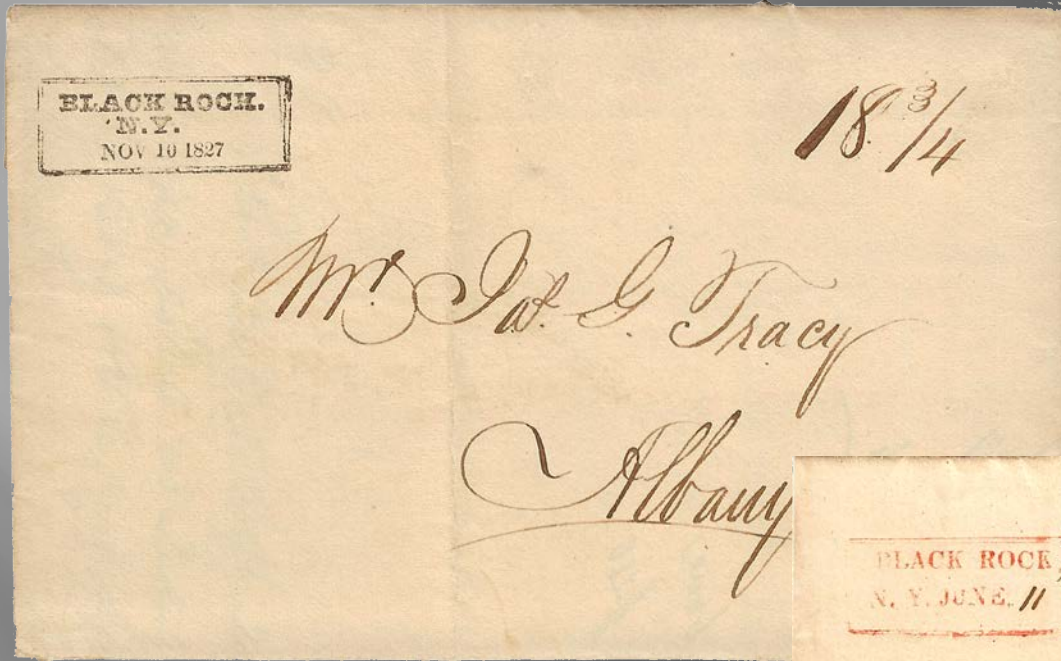 BLACK ROCK.
N.Y.
NOV 10 1827
18 3/4
Mr. Jas. G. Tracy
Albany
BLACK ROCK,
N. Y. JUNE. 11